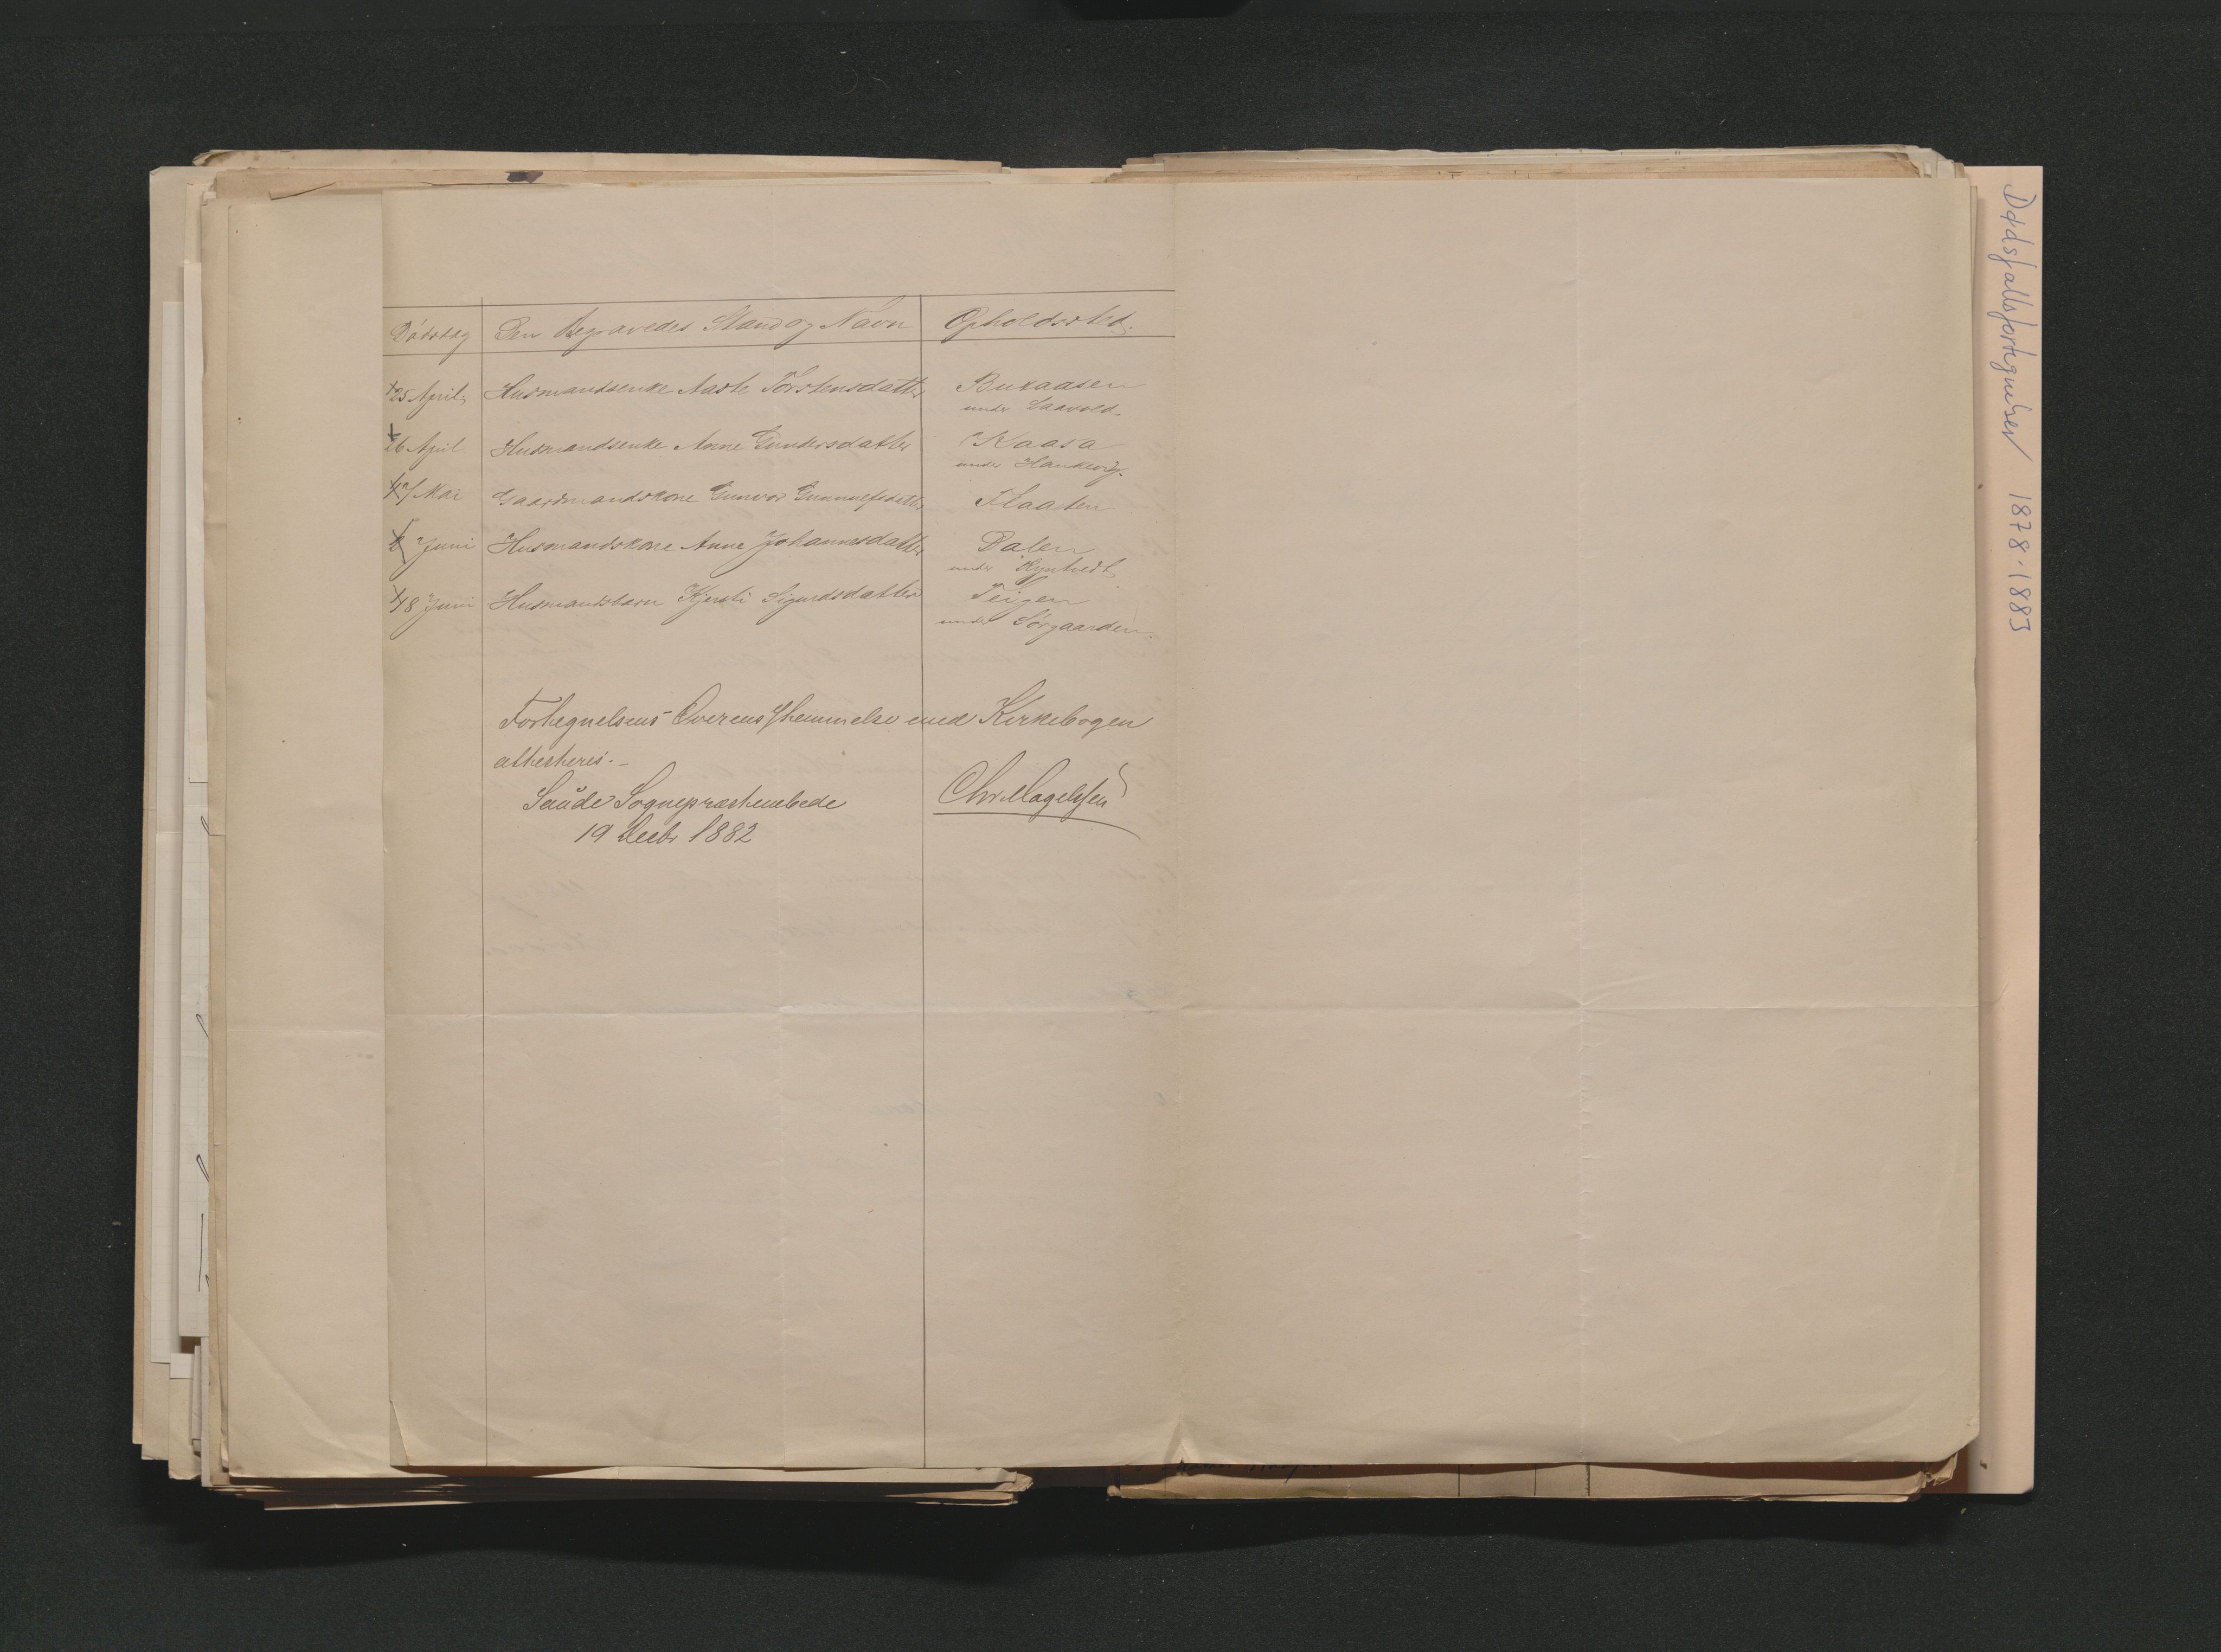 Dødsfallsfortegnelser 1878-1883
Dödsdag Den Begravedes Stand og Navn Opholdssted.
25 April Husmandsenke Aaste Torstensdatter Bukaasen
under Saavold.
26 April Husmandsenke Anne Gundersdatter Kaasa
under
Mai Gaardmandskone Gunvor Gunnulfsdatter Flaaten
Juni Husmandskone Anne Johannesdatter Dalen
under
18 Juni Husmandsbarn Kjersti Sigurdsdatter Teigen
under Sörgaarden.
Fortegnelsens Overensstemmelse med Kirkebogen
attesteres.-
Saude Sogneprestembede Chr. Magelssen
19 Decbr 1882